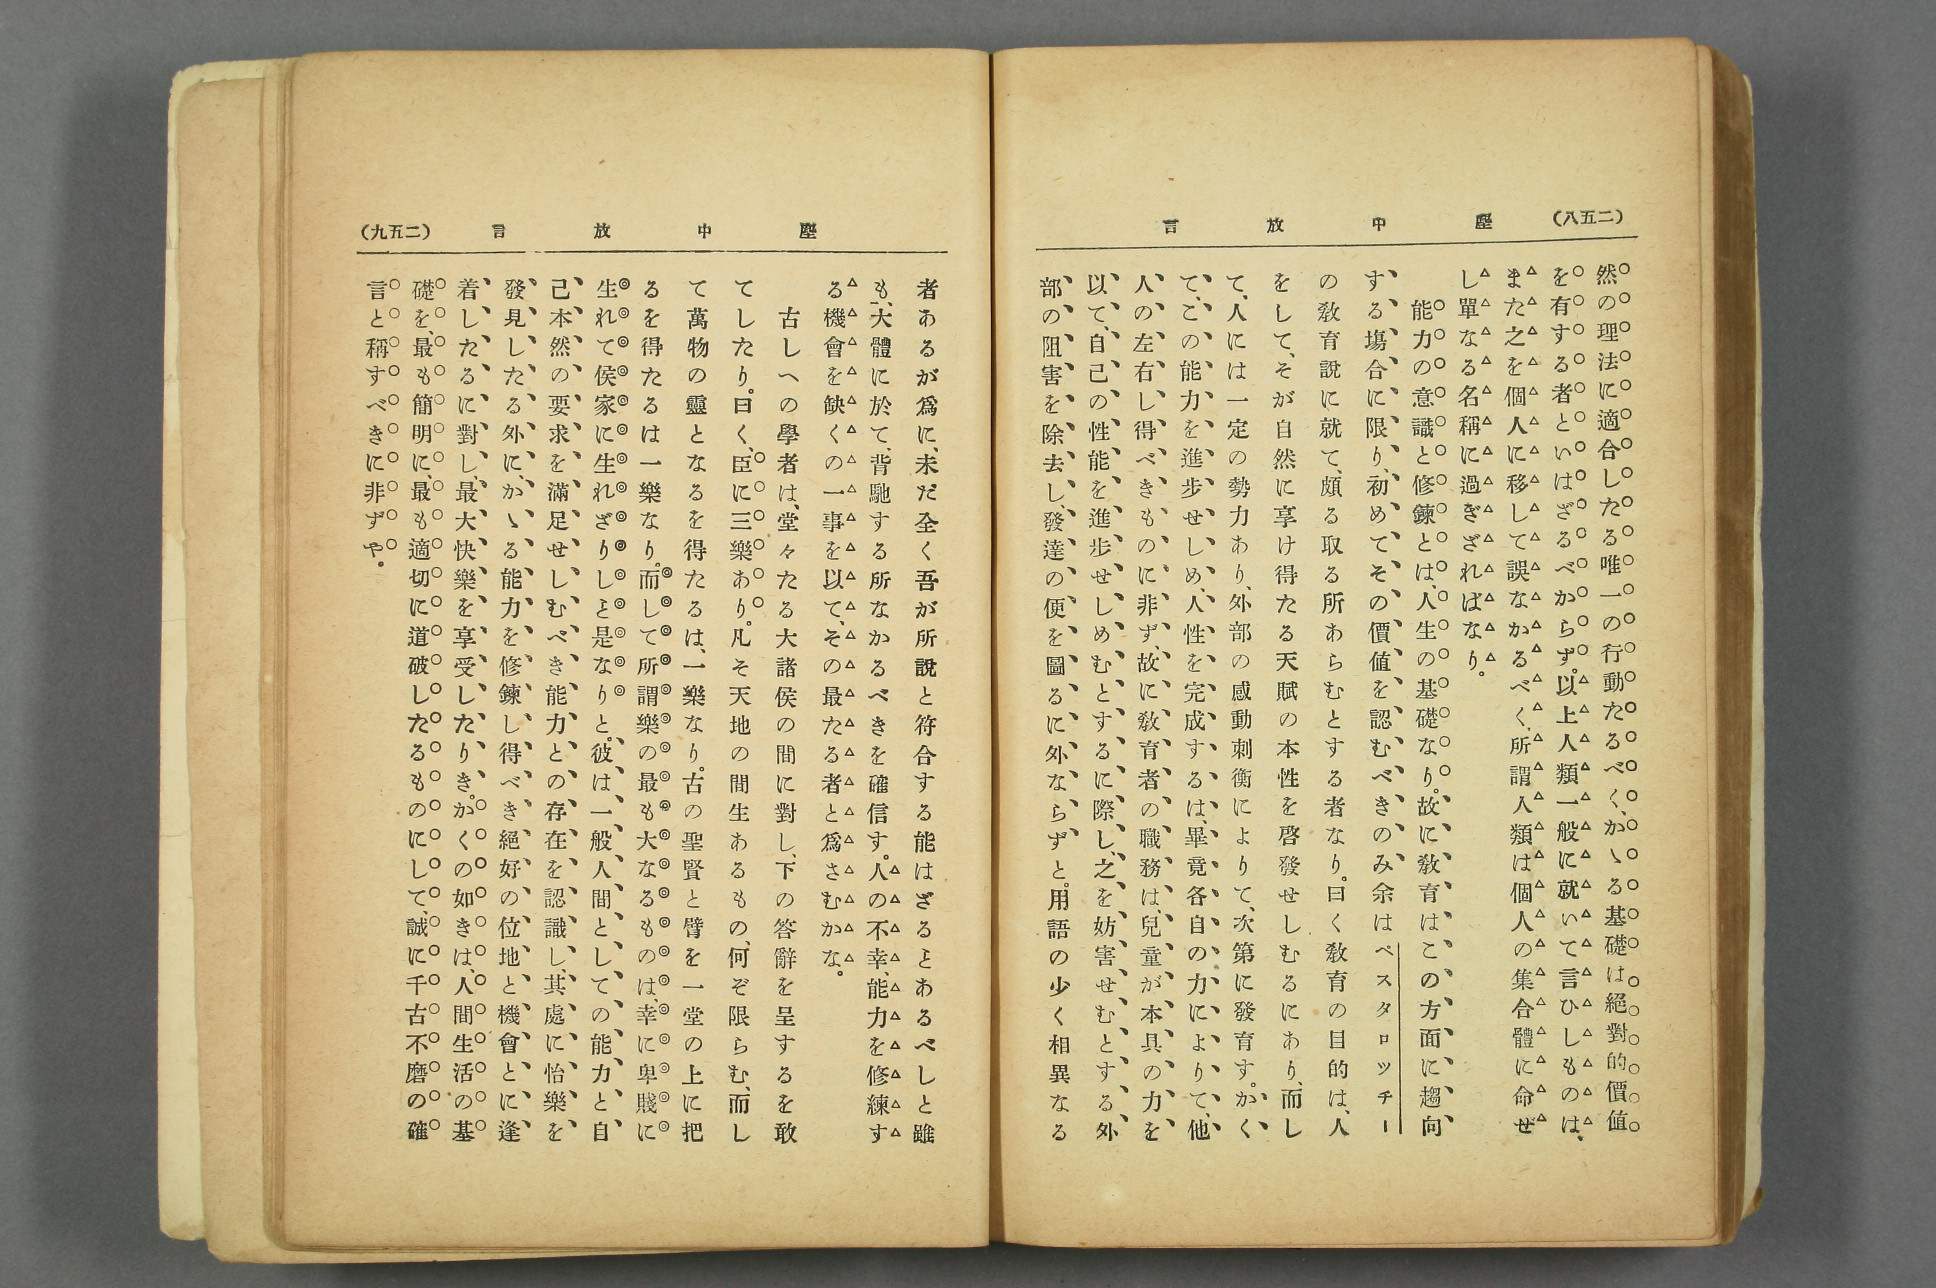 (二五八) 塵中放言
然の理法に適合したる唯一の行動たるべく、かゝる基礎は絕對的價値
を有する者といはざるべからず。以上人類一般に就いて言ひしものは、
また之を個人に移して誤なかるべく、所謂人類は個人の集合體に命ぜ
し單なる名稱に過ぎざればなり。
能力の意識と修鍊とは、人生の基礎なり。故に敎育はこの方面に趨向
する塲合に限り、初めてその價値を認むべきのみ、余はペスタロツチー
の敎育說に就て、頗る取る所あらむとする者なり。曰く敎育の目的は、人
をして、そが自然に享け得たる天賦の本性を啓發せしむるにあり、而し
て、人には一定の勢力あり、外部の感動刺衝によりて、次第に發育す。かく
て、この能力を進步せしめ、人性を完成するは、畢竟各自の力によりて、他
人の左右し得べきものに非ず、故に敎育者の職務は、兒童が本具の力を
以て、自己の性能を進步せしめむとするに際し、之を妨害せむとする外
部の阻害を除去し、發達の便を圖るに外ならずと。用語の少く相異なる
塵中放言 (二五九)
者あるが爲に、未だ全く吾が所說と符合する能はざるヿあるべしと雖
も、大體に於て、背馳する所なかるべきを確信す。人の不幸、能力を修練す
る機會を缺くの一事を以て、その最たる者と爲さむかな。
古しへの學者は、堂々たる大諸侯の間に對し、下の答辭を呈するを敢
てしたり。曰く、臣に三樂あり。凡そ天地の間生あるもの、何ぞ限らむ、而し
て萬物の靈となるを得たるは、一樂なり。古の聖賢と臂を一堂の上に把
るを得たるは一樂なり。而して所謂樂の最も大なるものは、幸に卑賤に
生れて侯家に生れざりしヿ是なりと。彼は一般人間としての能力と自
己本然の要求を滿足せしむべき能力との存在を認識し、其處に怡樂を
發見したる外に、かゝる能力を修鍊し得べき絕好の位地と機會とに逢
着したるに對し、最大快樂を享受したりき。かくの如きは、人間生活の基
礎を、最も簡明に、最も適切に道破したるものにして、誠に千古不磨の確
言と稱すべきに非ずや。